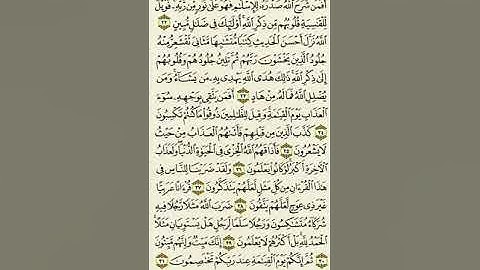 أَفَمَن شَرَحَ ٱللَّهُ صَدْرَهُۥ لِلْإِسْلَٰمِ فَهُوَ عَلَىٰ نُورٍ مِّن رَّبِّهِۦ فَوَيْلٌ
لِّلْقَٰسِيَةِ قُلُوبُهُم مِّن ذِكْرِ ٱللَّهِ أُو۟لَٰٓئِكَ فِى ضَلَٰلٍ مُّبِينٍ ٢٢
ٱللَّهُ نَزَّلَ أَحْسَنَ ٱلْحَدِيثِ كِتَٰبًا مُّتَشَٰبِهًا مَّثَانِىَ تَقْشَعِرُّ مِنْهُ
جُلُودُ ٱلَّذِينَ يَخْشَوْنَ رَبَّهُمْ ثُمَّ تَلِينُ جُلُودُهُمْ وَقُلُوبُهُمْ
إِلَىٰ ذِكْرِ ٱللَّهِ ذَٰلِكَ هُدَى ٱللَّهِ يَهْدِى بِهِۦ مَن يَشَآءُ وَمَن
يُضْلِلِ ٱللَّهُ فَمَا لَهُۥ مِنْ هَادٍ ٢٣ أَفَمَن يَتَّقِى بِوَجْهِهِۦ سُوٓءَ
ٱلْعَذَابِ يَوْمَ ٱلْقِيَٰمَةِ وَقِيلَ لِلظَّٰلِمِينَ ذُوقُوا۟ مَا كُنتُمْ تَكْسِبُونَ
٢٤ كَذَّبَ ٱلَّذِينَ مِن قَبْلِهِمْ فَأَتَىٰهُمُ ٱلْعَذَابُ مِنْ حَيْثُ
لَا يَشْعُرُونَ ٢٥ فَأَذَاقَهُمُ ٱللَّهُ ٱلْخِزْىَ فِى ٱلْحَيَوٰةِ ٱلدُّنْيَا وَلَعَذَابُ
ٱلْءَاخِرَةِ أَكْبَرُ لَوْ كَانُوا۟ يَعْلَمُونَ ٢٦ وَلَقَدْ ضَرَبْنَا لِلنَّاسِ فِى
هَٰذَا ٱلْقُرْءَانِ مِن كُلِّ مَثَلٍ لَّعَلَّهُمْ يَتَذَكَّرُونَ ٢٧ قُرْءَانًا عَرَبِيًّا
غَيْرَ ذِى عِوَجٍ لَّعَلَّهُمْ يَتَّقُونَ ٢٨ ضَرَبَ ٱللَّهُ مَثَلًا رَّجُلًا فِيهِ
شُرَكَآءُ مُتَشَٰكِسُونَ وَرَجُلًا سَلَمًا لِّرَجُلٍ هَلْ يَسْتَوِيَانِ مَثَلًا
ٱلْحَمْدُ لِلَّهِ بَلْ أَكْثَرُهُمْ لَا يَعْلَمُونَ ٢٩ إِنَّكَ مَيِّتٌ وَإِنَّهُم مَّيِّتُونَ
٣٠ ثُمَّ إِنَّكُمْ يَوْمَ ٱلْقِيَٰمَةِ عِندَ رَبِّكُمْ تَخْتَصِمُونَ ٣١